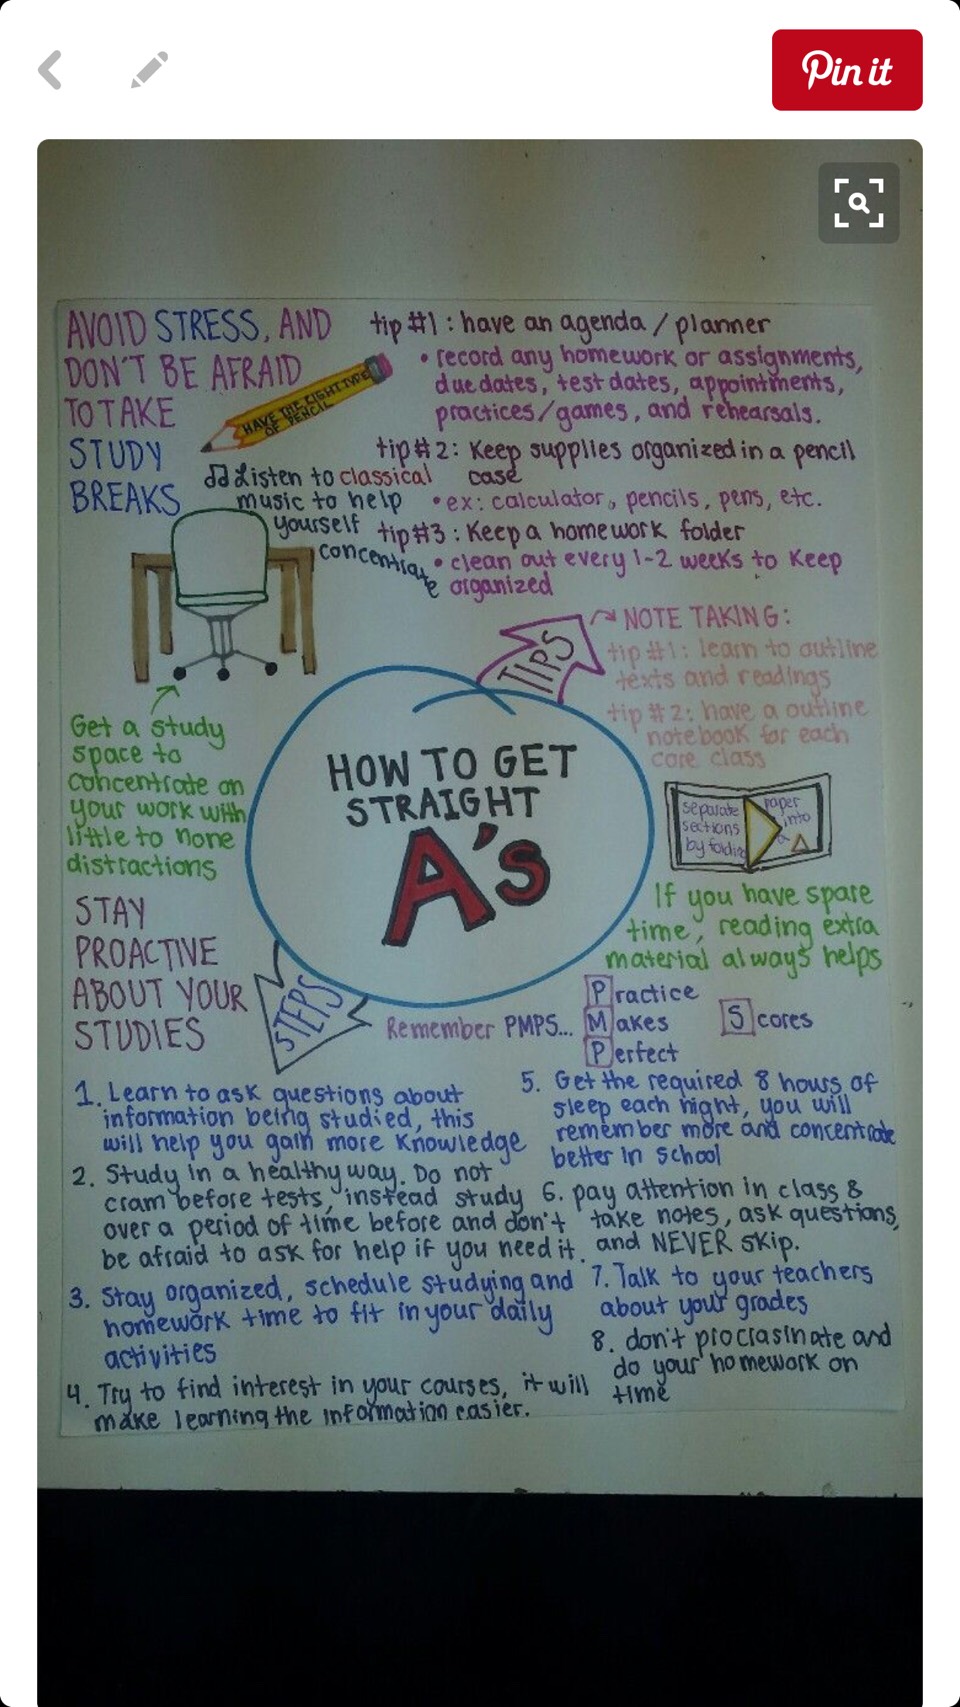 Pin it
AVOID STRESS, AND
DON'T BE AFRAID
TO TAKE
STUDY
BREAKS
HAVE THE RIGHT TYPE
OF PENCIL
Listen to classical
music to help
yourself
concentrate
tip #1: have an agenda / planner
• record any homework or assignments,
due dates, test dates, appointments,
practices/games, and rehearsals.
tip #2: Keep supplies organized in a pencil
case
• ex: calculator, pencils, pens, etc.
tip #3: Keep a homework folder
• clean out every 1-2 weeks to Keep
organized
TIPS
NOTE TAKING:
tip #1: learn to outline
texts and readings
tip #2: have a outline
notebook for each
core class
separate
sections
by folding
paper
into
a
If you have spare
time, reading extra
material always helps
Get a study
space to
concentrate on
your work with
little to none
distractions
HOW TO GET
STRAIGHT
A's
STAY
PROACTIVE
ABOUT YOUR
STUDIES
STEPS
Remember PMPS...
Practice
Makes
Perfect
Scores
1. Learn to ask questions about
information being studied, this
will help you gain more Knowledge
2. Study in a healthy way. Do not
cram before tests, instead study
over a period of time before and don't
be afraid to ask for help if you need it.
3. Stay organized, schedule studying and
homework time to fit in your daily
activities
4. Try to find interest in your courses, it will
make learning the information easier.
5. Get the required 8 hours of
sleep each night, you will
remember more and concentrate
better in school
6. pay attention in class &
take notes, ask questions,
and NEVER skip.
7. Talk to your teachers
about your grades
8. don't procrasinate and
do your homework on
time